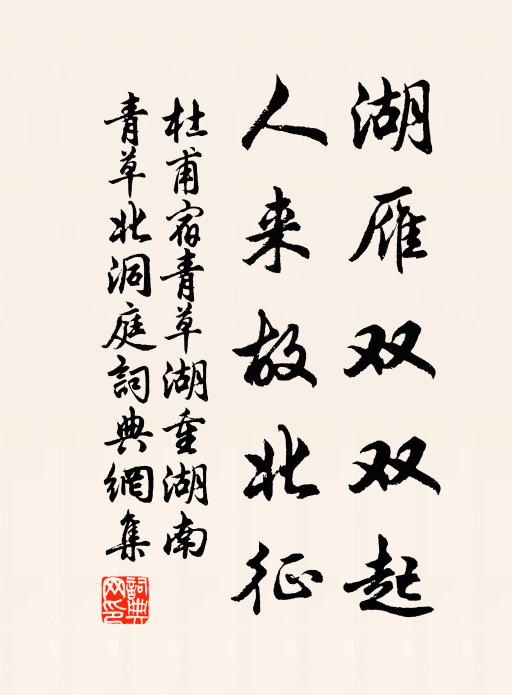 湖雁双双起
人来故北征
杜甫宿青草湖重湖南
青草北洞庭詞典網集
詞典
网印